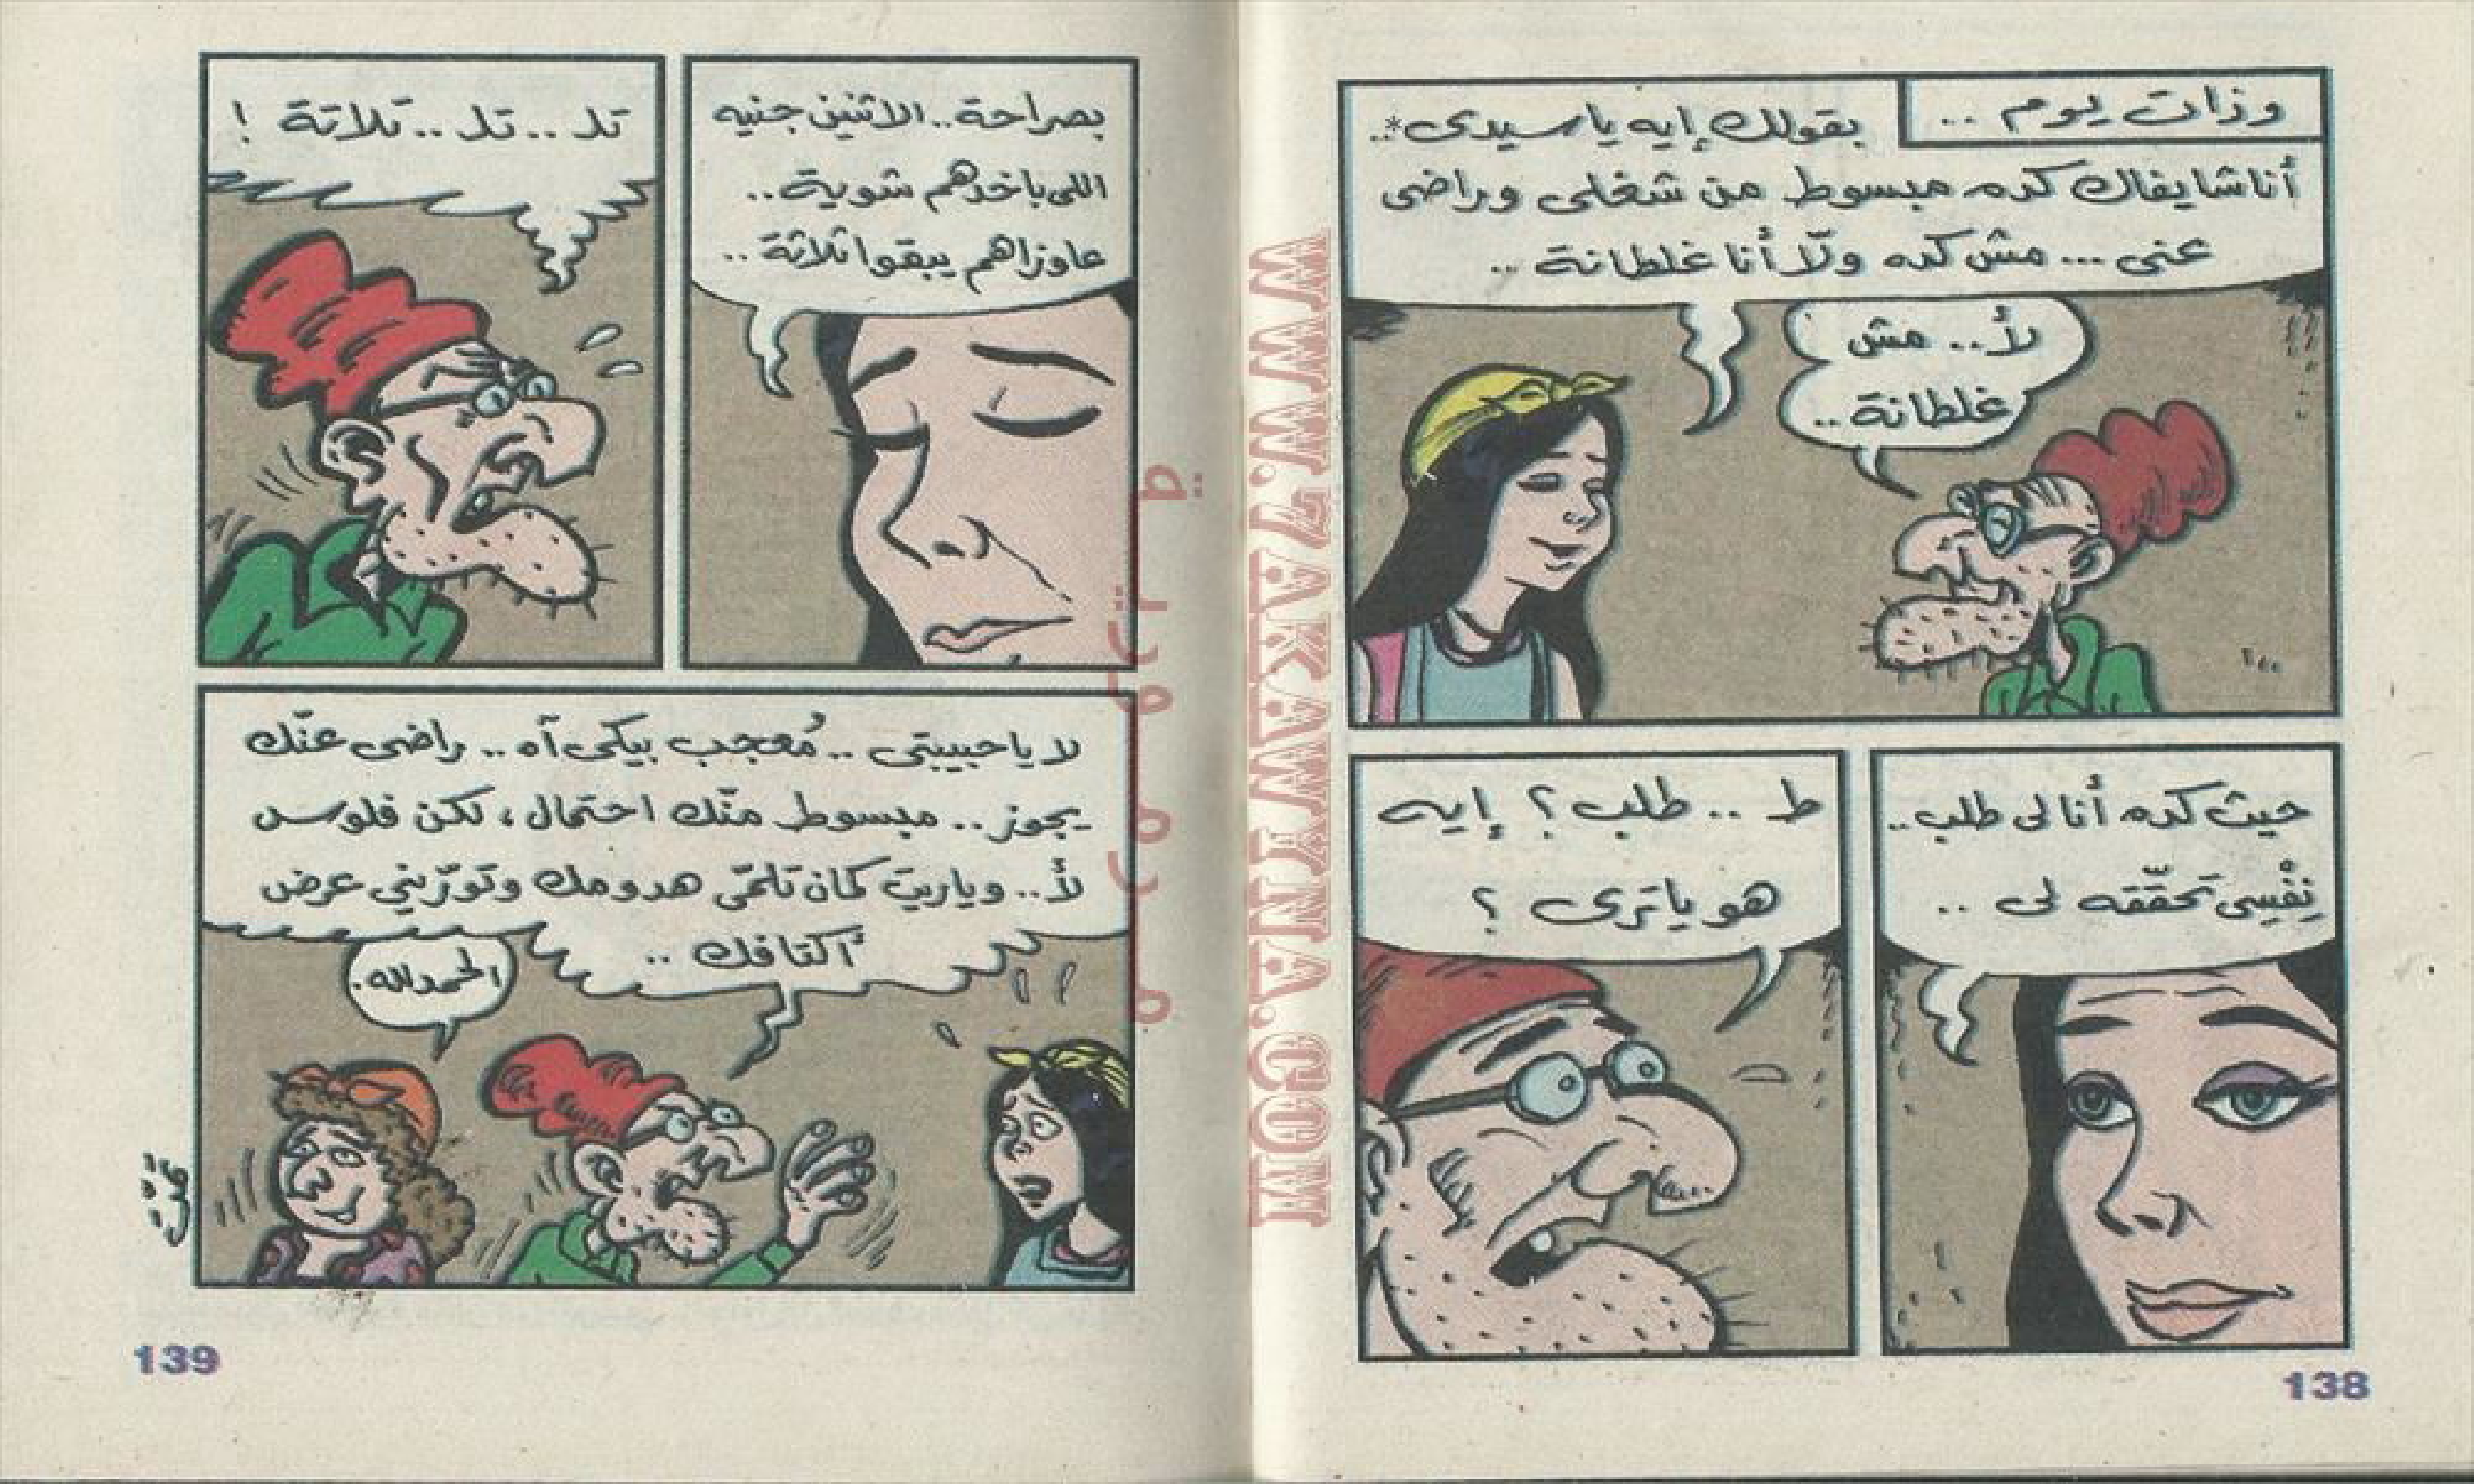 وذات يوم ..
بقولك إيه ياسيدى*..
أنا شايفاك كده مبسوط من شغلى وراضى
عنى ... مش كده ولّا أنا غلطانة ..
لأ .. مش
غلطانة ..
حيث كده أنا لى طلب ..
نِفْسِى تحقّقه لى ..
ط .. طلب ؟ إيه
هو ياترى ؟
138
بصراحة .. الاثنين جنيه
اللى باخدهم شوية ..
عاوزاهم يبقوا ثلاثة ..
تلا .. تلا .. تلاتة !
لا ياحبيبتى .. مُعجب بيكى آه .. راضى عنّك
يجوز .. مبسوط منّك احتمال ، لكن فلوس
لأ .. وياريت كمان تلمّى هدومك وتورّينى عرض
أكتافك ..
الحمد لله .
139
WWW.7AKAWYNA.COM